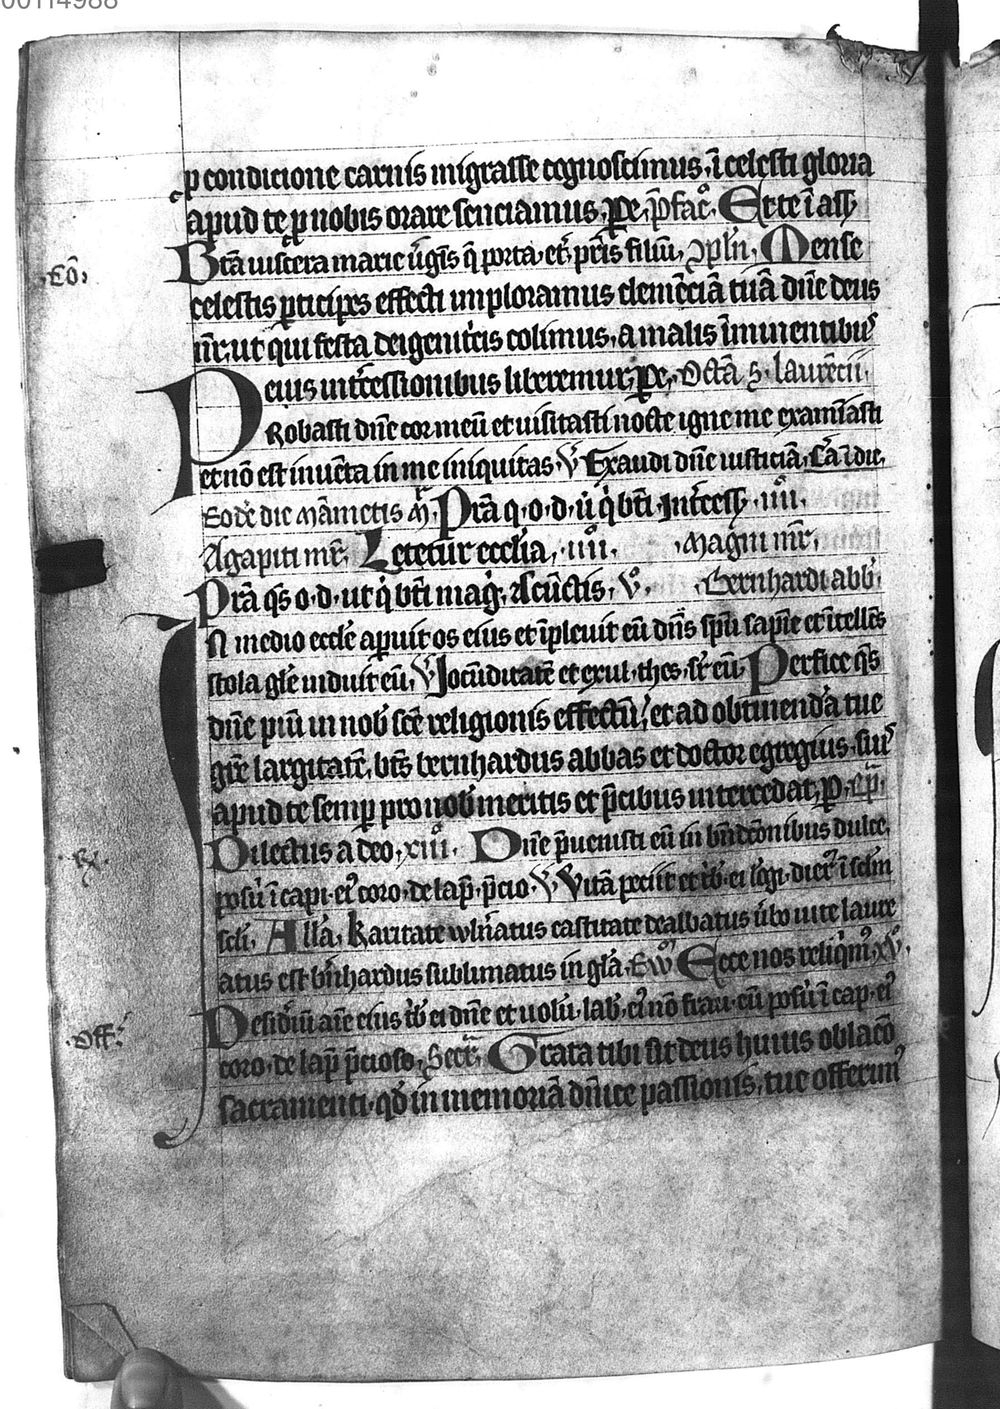 00114988
ꝓ condicione carnis migrasse cognoscimus, ī celesti gloria
apud te ꝓ nobis orare senciamus, ꝑ e, p̄fac̊. Et te ī ass
.Cō.
Btā uiscera marie v̓gīs q̄ porta. et̓. pr̄is filiū, ꝯpln̄, Mense
celestis ꝑticipes effecti imploramus clemēciā tuā dn̄e deus
nr̄. ut qui festa dei genit̓cis colimus, a malis īminentibꝰ
eius int̓cessionibus liberemur, ꝑ e, Octā s. laurēcii,
PRobasti dn̄e cor meū et uisitasti nocte igne me examīasti
et nō est inuēta in me iniquitas, ℣ Exaudi dn̄e iusticiā,
Eodē die Māmetis mr̄, Prā q. o. d. ut q̓ bt̄i int̓cess, iiii.
Agapiti mr̄, Letetur eccl̄ia, iiii. Magni mr̄,
Prā qs o. d. ut q̓ bt̄i mag̓, Bernhardi abb̓,
IN medio eccl̄e aꝑuit os eius et īpleuit eū dn̄s sp̄u sapīe et ītellc̄s
stola gl̄e induit eū, ℣ Jocūditatē et exul. thes. sr̄ eū, Perfice qs̄
dn̄e piū in nob̓ sc̄e religionis effectū, et ad obtinendā tue
gr̄e largitatē, bt̄s bernhardus abbas et doctor egregius, suis
apud te semꝑ pro nob̓ meritis et p̄cibus intercedat, ꝑ, ep̄,
Dilectus a deo, xiii. Dn̄e p̄uenisti eū in bn̄dcōnibus dulce,
.℟.
posu̓ ī capi. eiꝰ coro. de lap̄. p̄cio, ℣ Vitā peciit et t̓b̓. ei lōgi. dierꝰ ī sc̄lm
sc̄li, All̄a, Karitate wln̄atus castitate dealbatus v̓bo uite laure
atus est bn̄hardus sublimatus in gl̄a, Ewꝰ Ecce nos reliqimꝰ, xv,
.Off.
Desid̓iū aīe eius t̓b̓ ei dn̄e et uolū. lab̓. eiꝰ nō frau. eū posu̓ ī cap. eiꝰ
coro. de lap̄ p̄cioso, Secr̄, Grata tibi sit deus huius oblacō
sacramenti. qd̓ in memoriā dn̄ice passionis, tue offerimꝰ